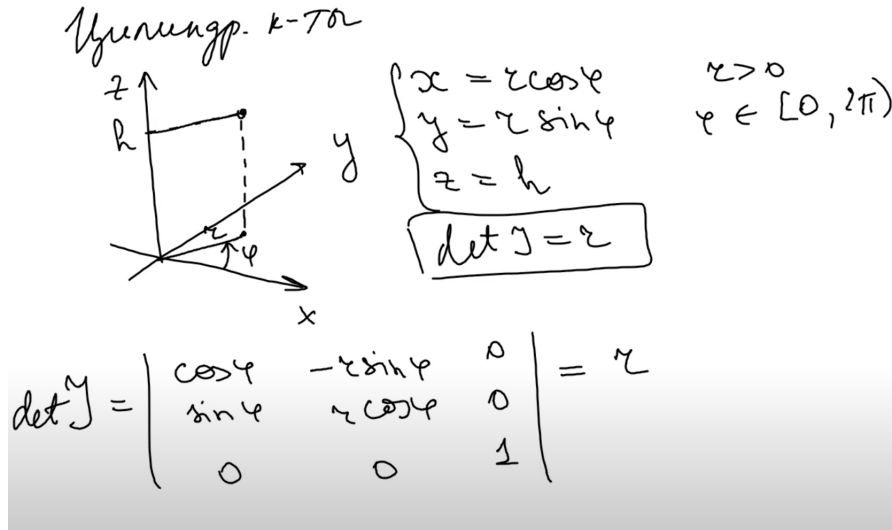 Цилиндр. к-ты
z
h
y
r
φ
x
x = r cosφ
y = r sinφ
z = h
r > 0
φ ∈ [0, 2π)
det J = r
det J = | cosφ -r sinφ 0 | = r
sinφ r cosφ 0
0 0 1